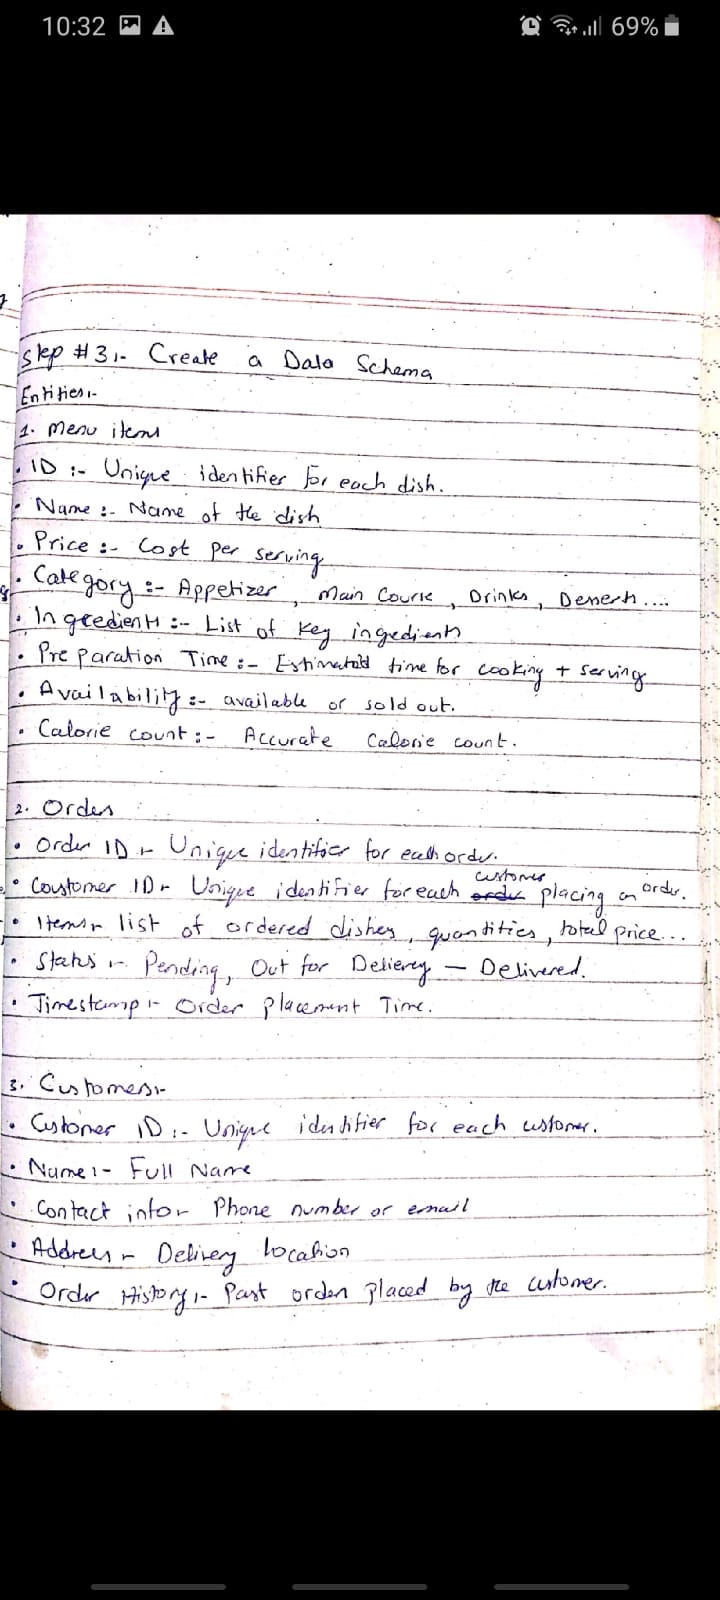 10:32 69%
Step #3:- Create a Data Schema
Entities:-
1. Menu items
• ID :- Unique identifier for each dish.
• Name :- Name of the dish
• Price :- Cost per serving
• Category :- Appetizer, Main Course, Drinks, Desserts....
• Ingredients :- List of key ingredients
• Preparation Time :- Estimated time for cooking + serving
• Availability :- available or sold out.
• Calorie count :- Accurate Calorie count.
2. Orders
• Order ID :- Unique identifier for each order.
• Coustomer ID :- Unique identifier for each customer placing an order.
• Items :- list of ordered dishes, quantities, total price...
• Status :- Pending, Out for Delierey — Delivered.
• Timestamp :- Order placement Time.
3. Customers:-
• Customer ID :- Unique identifier for each customer.
• Name :- Full Name
• Contact info :- Phone number or email
• Address :- Delivery location
• Order History :- Past orders placed by the customer.